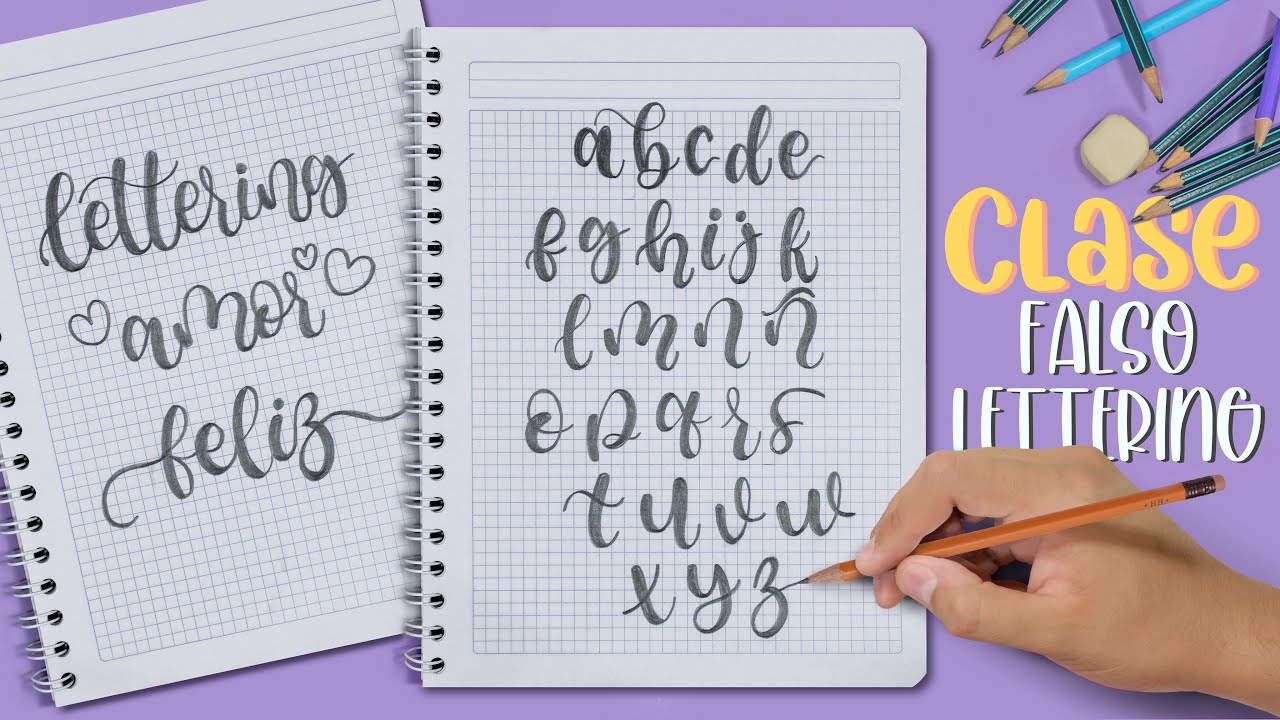 lettering
amor
feliz
abcde
fghijk
lmnñ
opqrs
tuvw
xyz
Clase
FALSO
LETTERING
HB